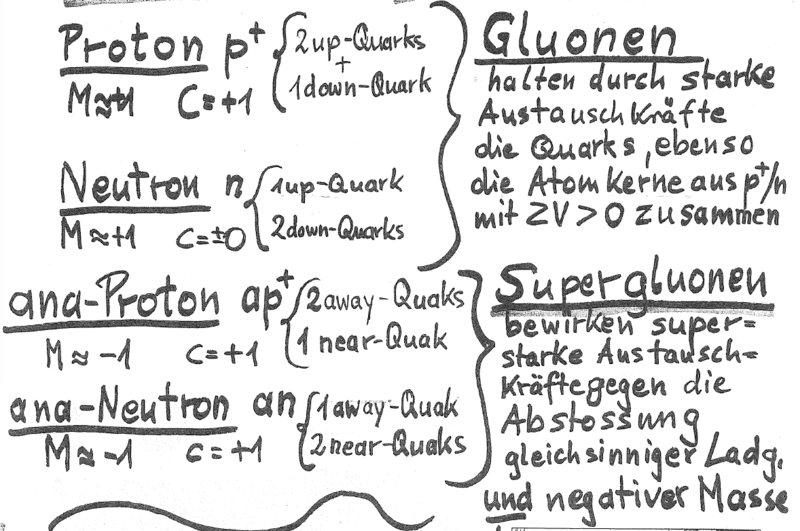 Proton p⁺
2up-Quarks
+
1down-Quark
M≈+1 C=+1
Neutron n
1up-Quark
2down-Quarks
M≈+1 C=±0
Gluonen
halten durch starke
Austauschkräfte
die Quarks, ebenso
die Atomkerne aus p⁺/n
mit ZV>0 zusammen
ana-Proton ap⁺
2away-Quaks
1 near-Quak
M≈-1 C=+1
ana-Neutron an
1away-Quak
2near-Quaks
M≈-1 C=+1
Supergluonen
bewirken super=
starke Austausch=
Kräfte gegen die
Abstossung
gleichsinniger Ladg.
und negativer Masse